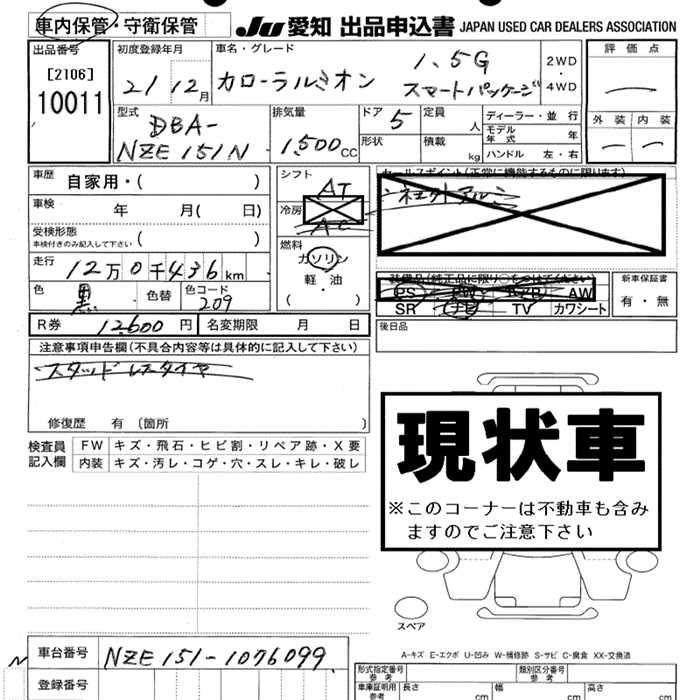 車内保管・守衛保管 JU 愛知 出品申込書 JAPAN USED CAR DEALERS ASSOCIATION
出品番号 [2106] 10011
初度登録年月 21 12月
車名・グレード カローラルミオン 1.5G スマートパッケージ
2WD・4WD
評価点 ー
型式 DBA-NZE151N
排気量 1,500cc
ドア 5
形状
定員 人
積載 kg
ディーラー・並行
モデル年式 年
ハンドル 左・右
外装 ー 内装 ー
車歴 自家用・( )
シフト AT
セールスポイント(正常に機能するものに限ります)
車検 年 月( 日)
冷房 AC
受検形態 車検付きのみ記入して下さい ( )
燃料 ガソリン 軽・油 ( ・ )
走行 12万0千436km
色 黒 色替 色コード 209
装備品(純正品に限り○をつけてください)
PS PW AW
SR TV カワシート
新車保証書 有・無
R券 12,600円 名変期限 月 日
後日品
注意事項申告欄(不具合内容等は具体的に記入して下さい)
スタッドレスタイヤ
修復歴 有 〔箇所 〕
検査員記入欄
FW キズ・飛石・ヒビ割・リペア跡・X要
内装 キズ・汚レ・コゲ・穴・スレ・キレ・破レ
現状車
※このコーナーは不動車も含み
ますのでご注意下さい
スペア
A-キズ E-エクボ U-凹み W-補修跡 S-サビ C-腐食 XX-交換済
N 車台番号 NZE151-1076099
登録番号
形式指定番号 参考
類別区分番号 参考
車庫証明用 参考 長さ cm 幅 cm 高さ cm